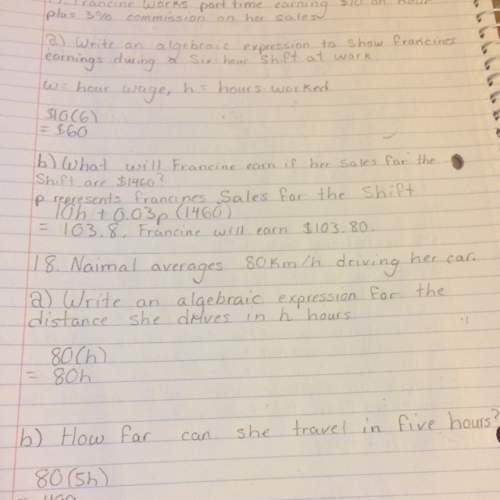 Francine works part time earning $10 an hour
plus 3% commission on her sales
a) Write an algebraic expression to show Francines
earnings during a Six-hour Shift at work
w = hour wage, h = hours worked
$10(6)
= $60
b) What will Francine earn if her sales for the
Shift are $1460?
p represents Francines Sales for the Shift
10h + 0.03p (1460)
= 103.8. Francine will earn $103.80.
18. Naimal averages 80km/h driving her car.
a) Write an algebraic expression for the
distance she drives in h hours
80(h)
= 80h
b) How far can she travel in five hours?
80(5h)